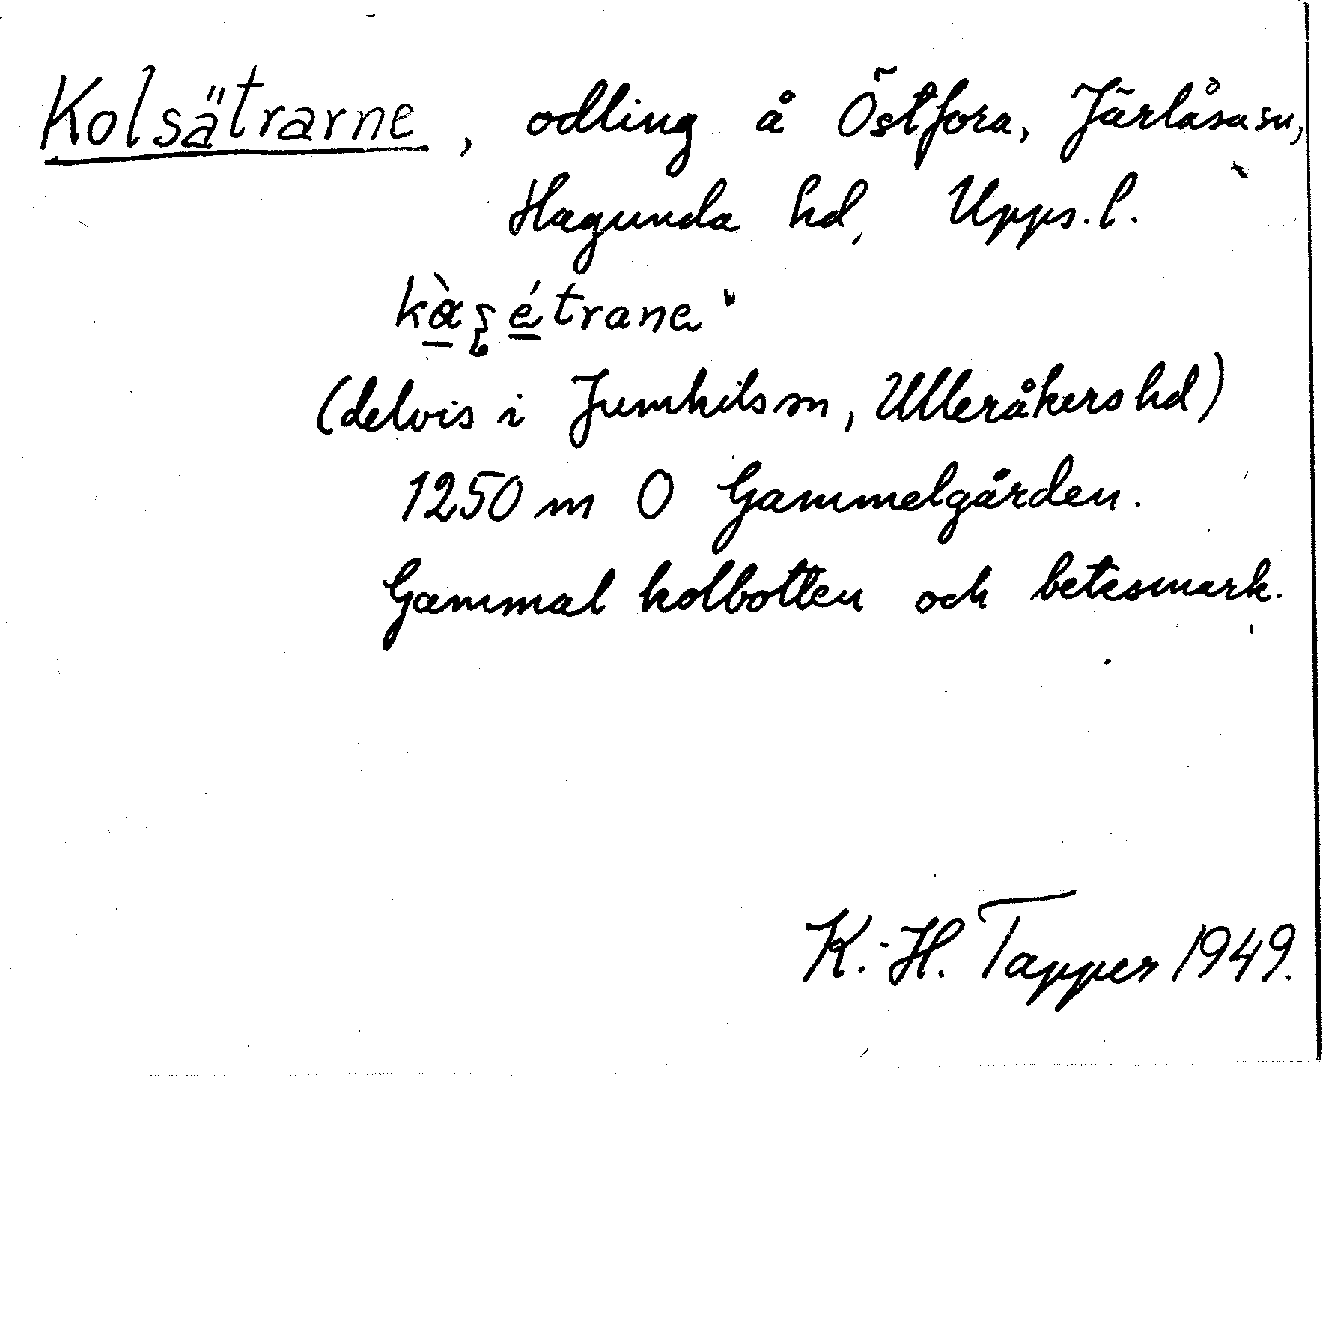 Kolsätrarne, odling å Östfora, Järlåsa sn,
Hagunda hd, Upps. l.
(delvis i Jumkils sn, Ulleråkers hd)
1250 m O Gammelgården.
Gammal kolbotten och betesmark.
K.-H. Tapper 1949.